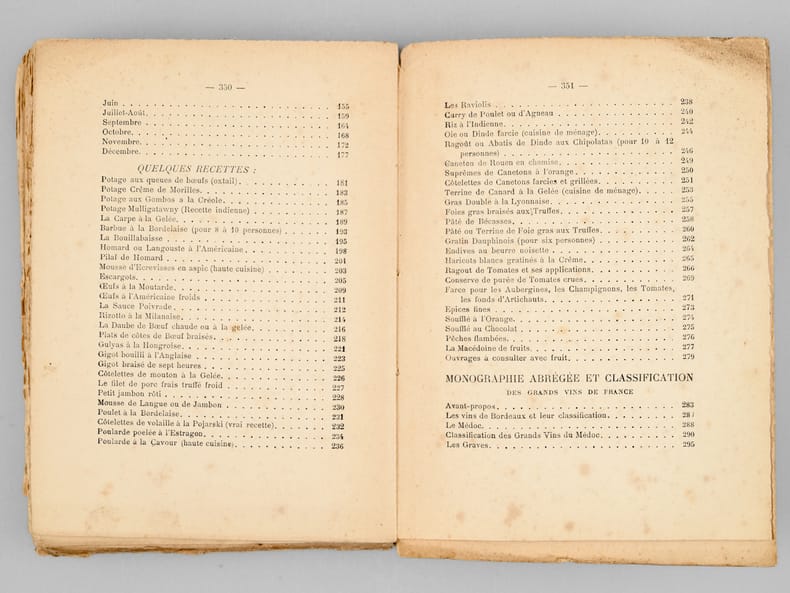 — 350 —
Juin . . . 155
Juillet-Août. . . . 159
Septembre . . . 164
Octobre. . . . 168
Novembre. . . . 172
Décembre. . . . 177
QUELQUES RECETTES :
Potage aux queues de bœufs (oxtail). . . . 181
Potage Crême de Morilles. . . . 183
Potage aux Gombos a la Créole. . . . 185
Potage Mulligatawny (Recette indienne) . . . 187
La Carpe à la Gelée. . . . 189
Barbue à la Bordelaise (pour 8 à 10 personnes) . . . 193
La Bouillabaisse . . . 195
Homard ou Langouste à l'Américaine . . . 198
Pilaf de Homard . . . 201
Mousse d'Ecrevisses en aspic (haute cuisine) . . . 203
Escargots. . . . 205
Œufs à la Moutarde. . . . 209
Œufs à l'Américaine froids . . . 211
La Sauce Poivrade . . . 212
Rizotto à la Milanaise. . . . 214
La Daube de Bœuf chaude ou à la gelée. . . . 216
Plats de côtes de Bœuf braisés. . . . 218
Gulyas à la Hongroise. . . . 221
Gigot bouilli à l'Anglaise . . . 223
Gigot braisé de sept heures . . . 225
Côtelettes de mouton à la Gelée. . . . 226
Le filet de porc frais truffé froid . . . 227
Petit jambon rôti . . . 228
Mousse de Langue ou de Jambon . . . 230
Poulet à la Bordelaise. . . . 231
Côtelettes de volaille à la Pojarski (vrai recette). . . . 232
Poularde poelée à l'Estragon. . . . 234
Poularde à la Cavour (haute cuisine). . . . 236
— 351 —
Les Raviolis . . . 238
Carry de Poulet ou d'Agneau . . . 240
Riz à l'Indienne. . . . 242
Oie ou Dinde farcie (cuisine de ménage). . . . 244
Ragoût ou Abatis de Dinde aux Chipolatas (pour 10 à 12
personnes) . . . 246
Caneton de Rouen en chemise. . . . 249
Suprêmes de Canetons à l'orange. . . . 250
Côtelettes de Canetons farcies et grillées. . . . 251
Terrine de Canard à la Gelée (cuisine de ménage) . . . 253
Gras Doublé à la Lyonnaise. . . . 255
Foies gras braisés aux Truffes. . . . 257
Pâté de Bécasses. . . . 258
Pâté ou Terrine de Foie gras aux Truffes. . . . 260
Gratin Dauphinois (pour six personnes) . . . 262
Endives au beurre noisette . . . 264
Haricots blancs gratinés à la Crême. . . . 265
Ragout de Tomates et ses applications. . . . 266
Conserve de purée de Tomates crues. . . . 269
Farce pour les Aubergines, les Champignons, les Tomates,
les fonds d'Artichauts. . . . 271
Epices fines . . . 273
Soufflé à l'Orange. . . . 274
Soufflé au Chocolat . . . 275
Pêches flambées. . . . 276
La Macédoine de fruits. . . . 277
Ouvrages à consulter avec fruit. . . . 279
MONOGRAPHIE ABRÉGÉE ET CLASSIFICATION
DES GRANDS VINS DE FRANCE
Avant-propos. . . . 283
Les vins de Bordeaux et leur classification. . . .
Le Médoc. . . . 288
Classification des Grands Vins du Médoc. . . . 290
Les Graves. . . . 295